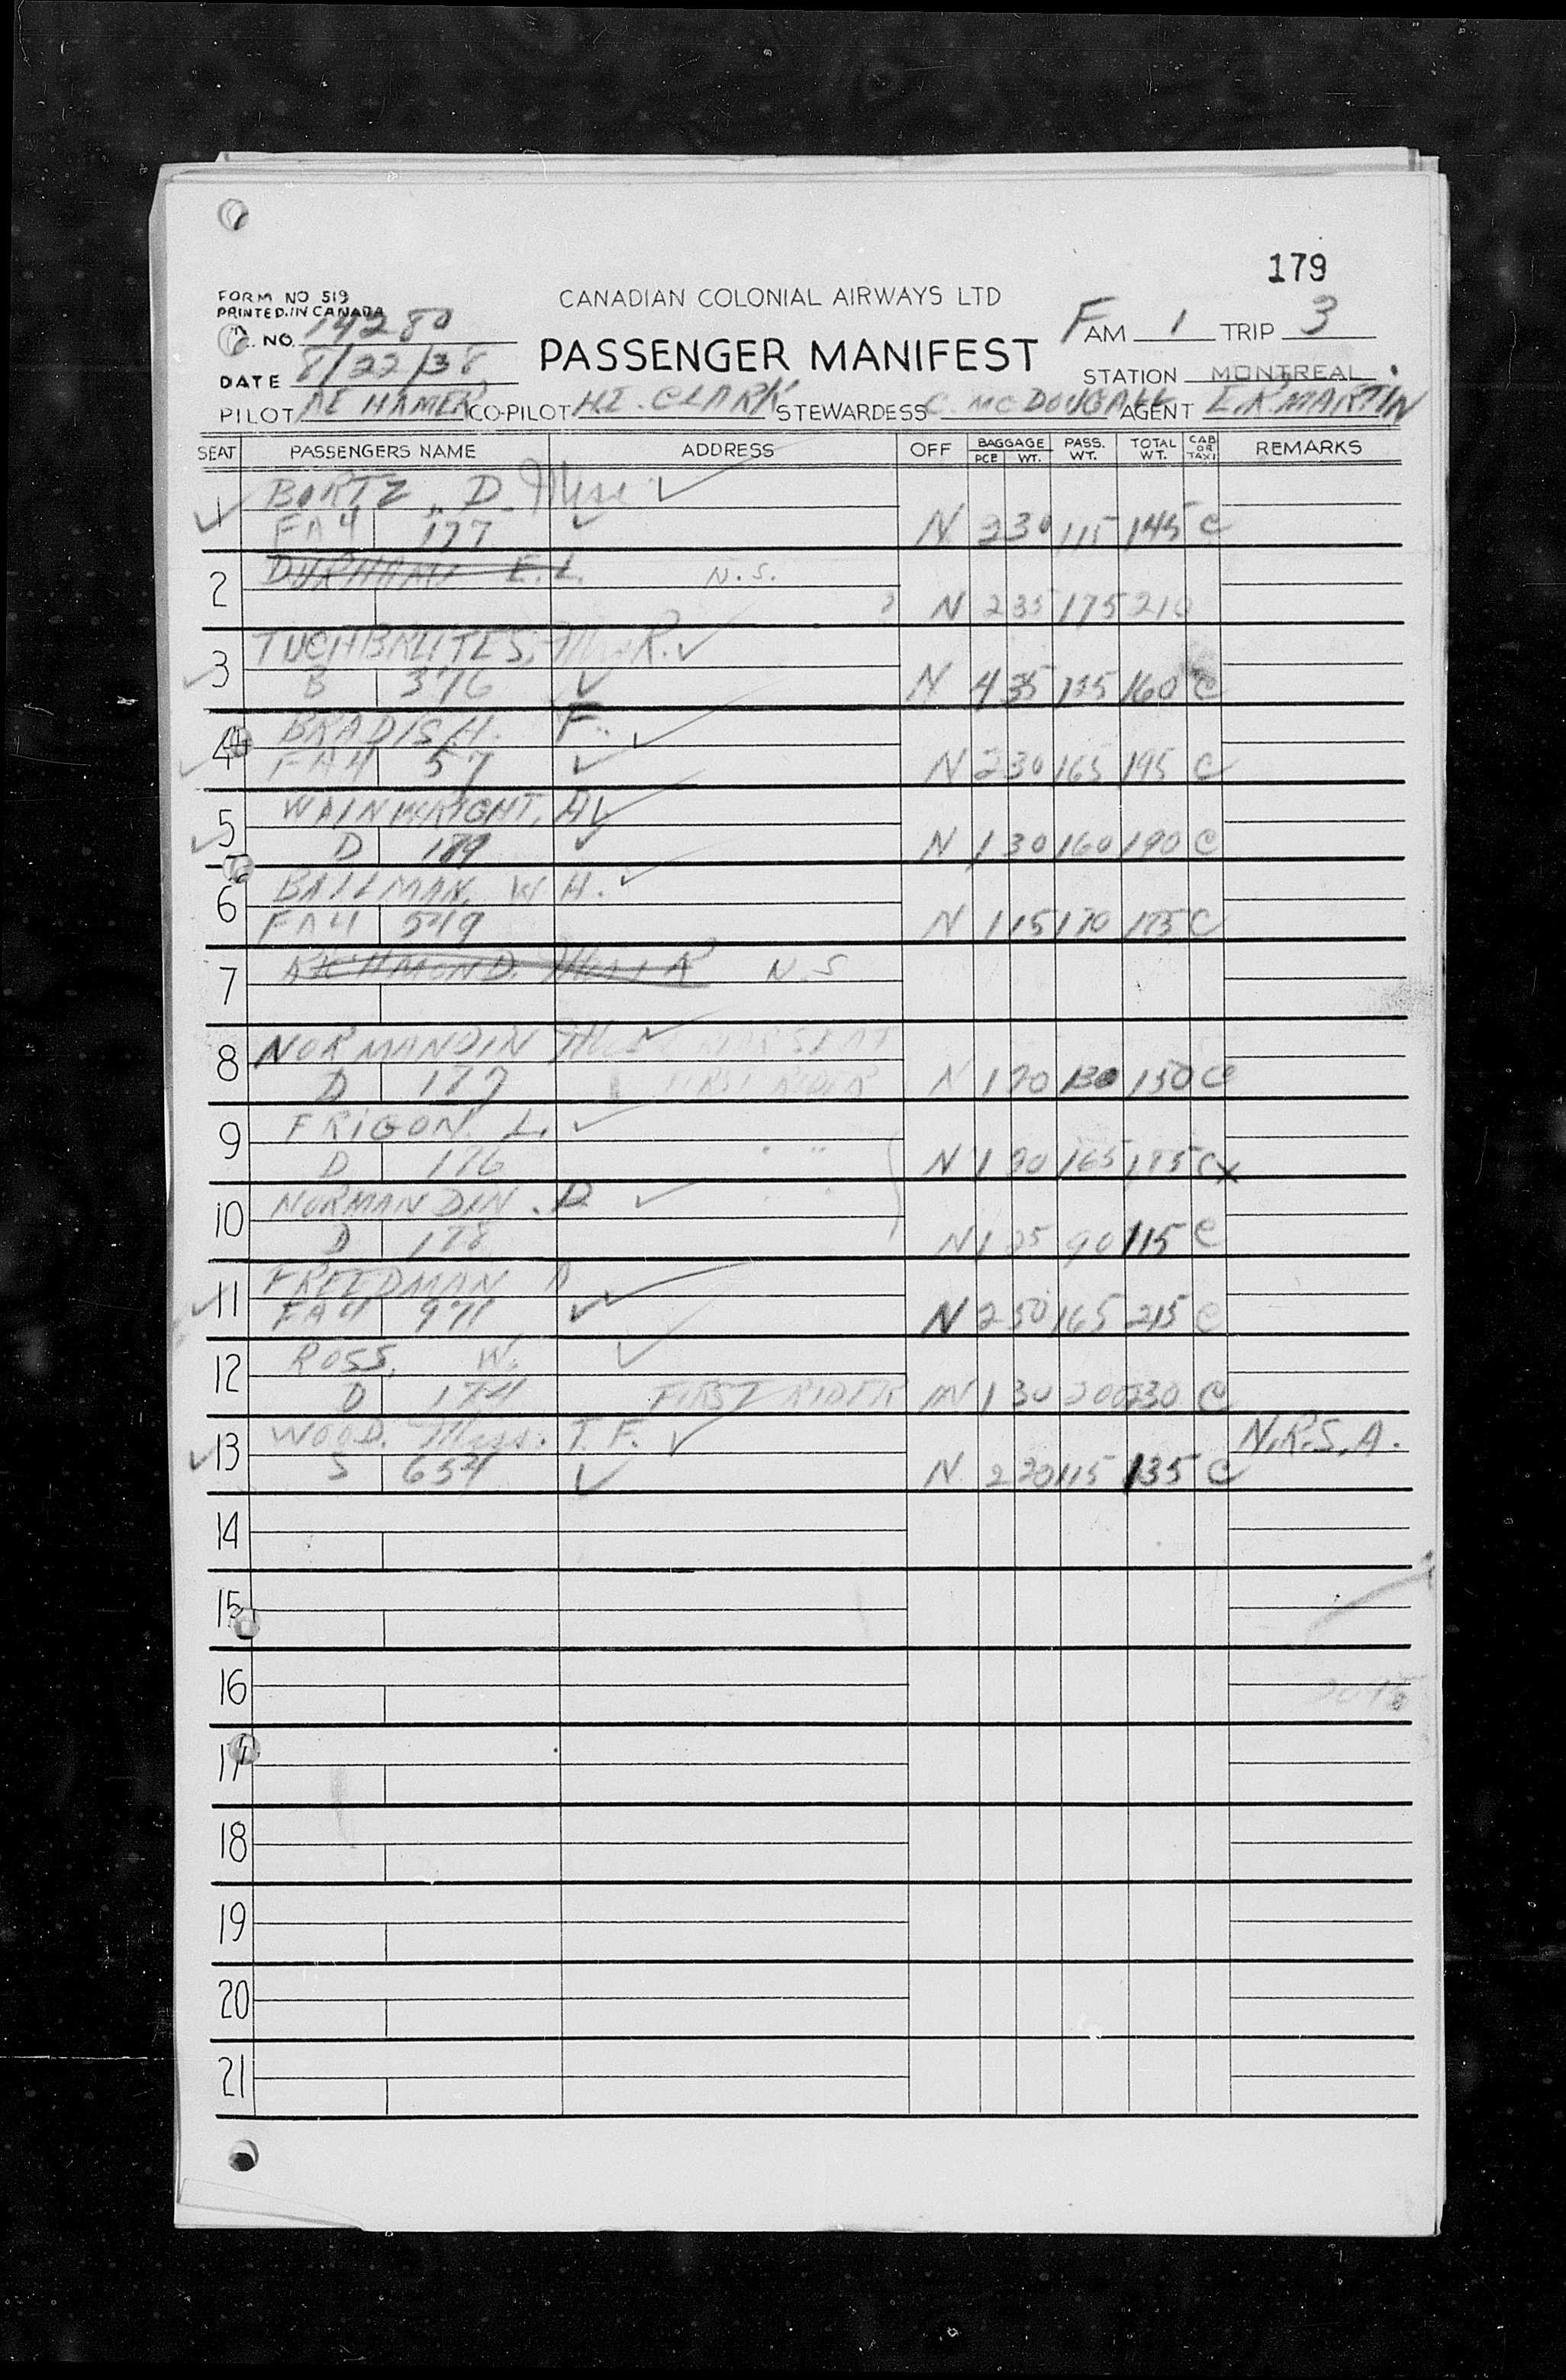 179
FORM NO 519
PRINTED IN CANADA
CANADIAN COLONIAL AIRWAYS LTD
NO. 14280
PASSENGER MANIFEST
FAM 1 TRIP 3
DATE 8/22/38
STATION MONTREAL
PILOT AE HAMER CO-PILOT H.I. CLARK STEWARDESS C. MCDOUGALL AGENT E.R. MARTIN
SEAT PASSENGERS NAME ADDRESS OFF BAGGAGE PCE WT. PASS. WT. TOTAL WT. CAB OR TAXI REMARKS
1 BORTZ, D. Miss
FA4 177 N 2 30 115 145 C
2 DURHAM E.L. N.S.
N 2 35 175 210
3 R.
B 376 N 4 35 160 C
4 BRADISH. F.
FA4 57 N 2 30 165 195 C
5 WAINWRIGHT, A
D 189 N 1 30 160 190 C
6 BAILMAN, W H.
FA4 549 N 1 15 170 C
7 RICHMOND. Miss R N.S
8 NORMANDIN
D 177 FIRST RIDER N 1 20 130 150 C
9 FRIGON L.
D 176 " N 1 20 165 185 C X
10 NORMANDIN. D
D 178 N 1 25 90 115 C
11 FREEDMAN D
FA4 971 N 2 50 165 215 C
12 ROSS, W.
D 174 FIRST RIDER N 1 30 200 230 C
13 WOOD. Miss. T. F. N.R.S.A.
S 654 N 2 20 115 135 C
14
15
16
17
18
19
20
21